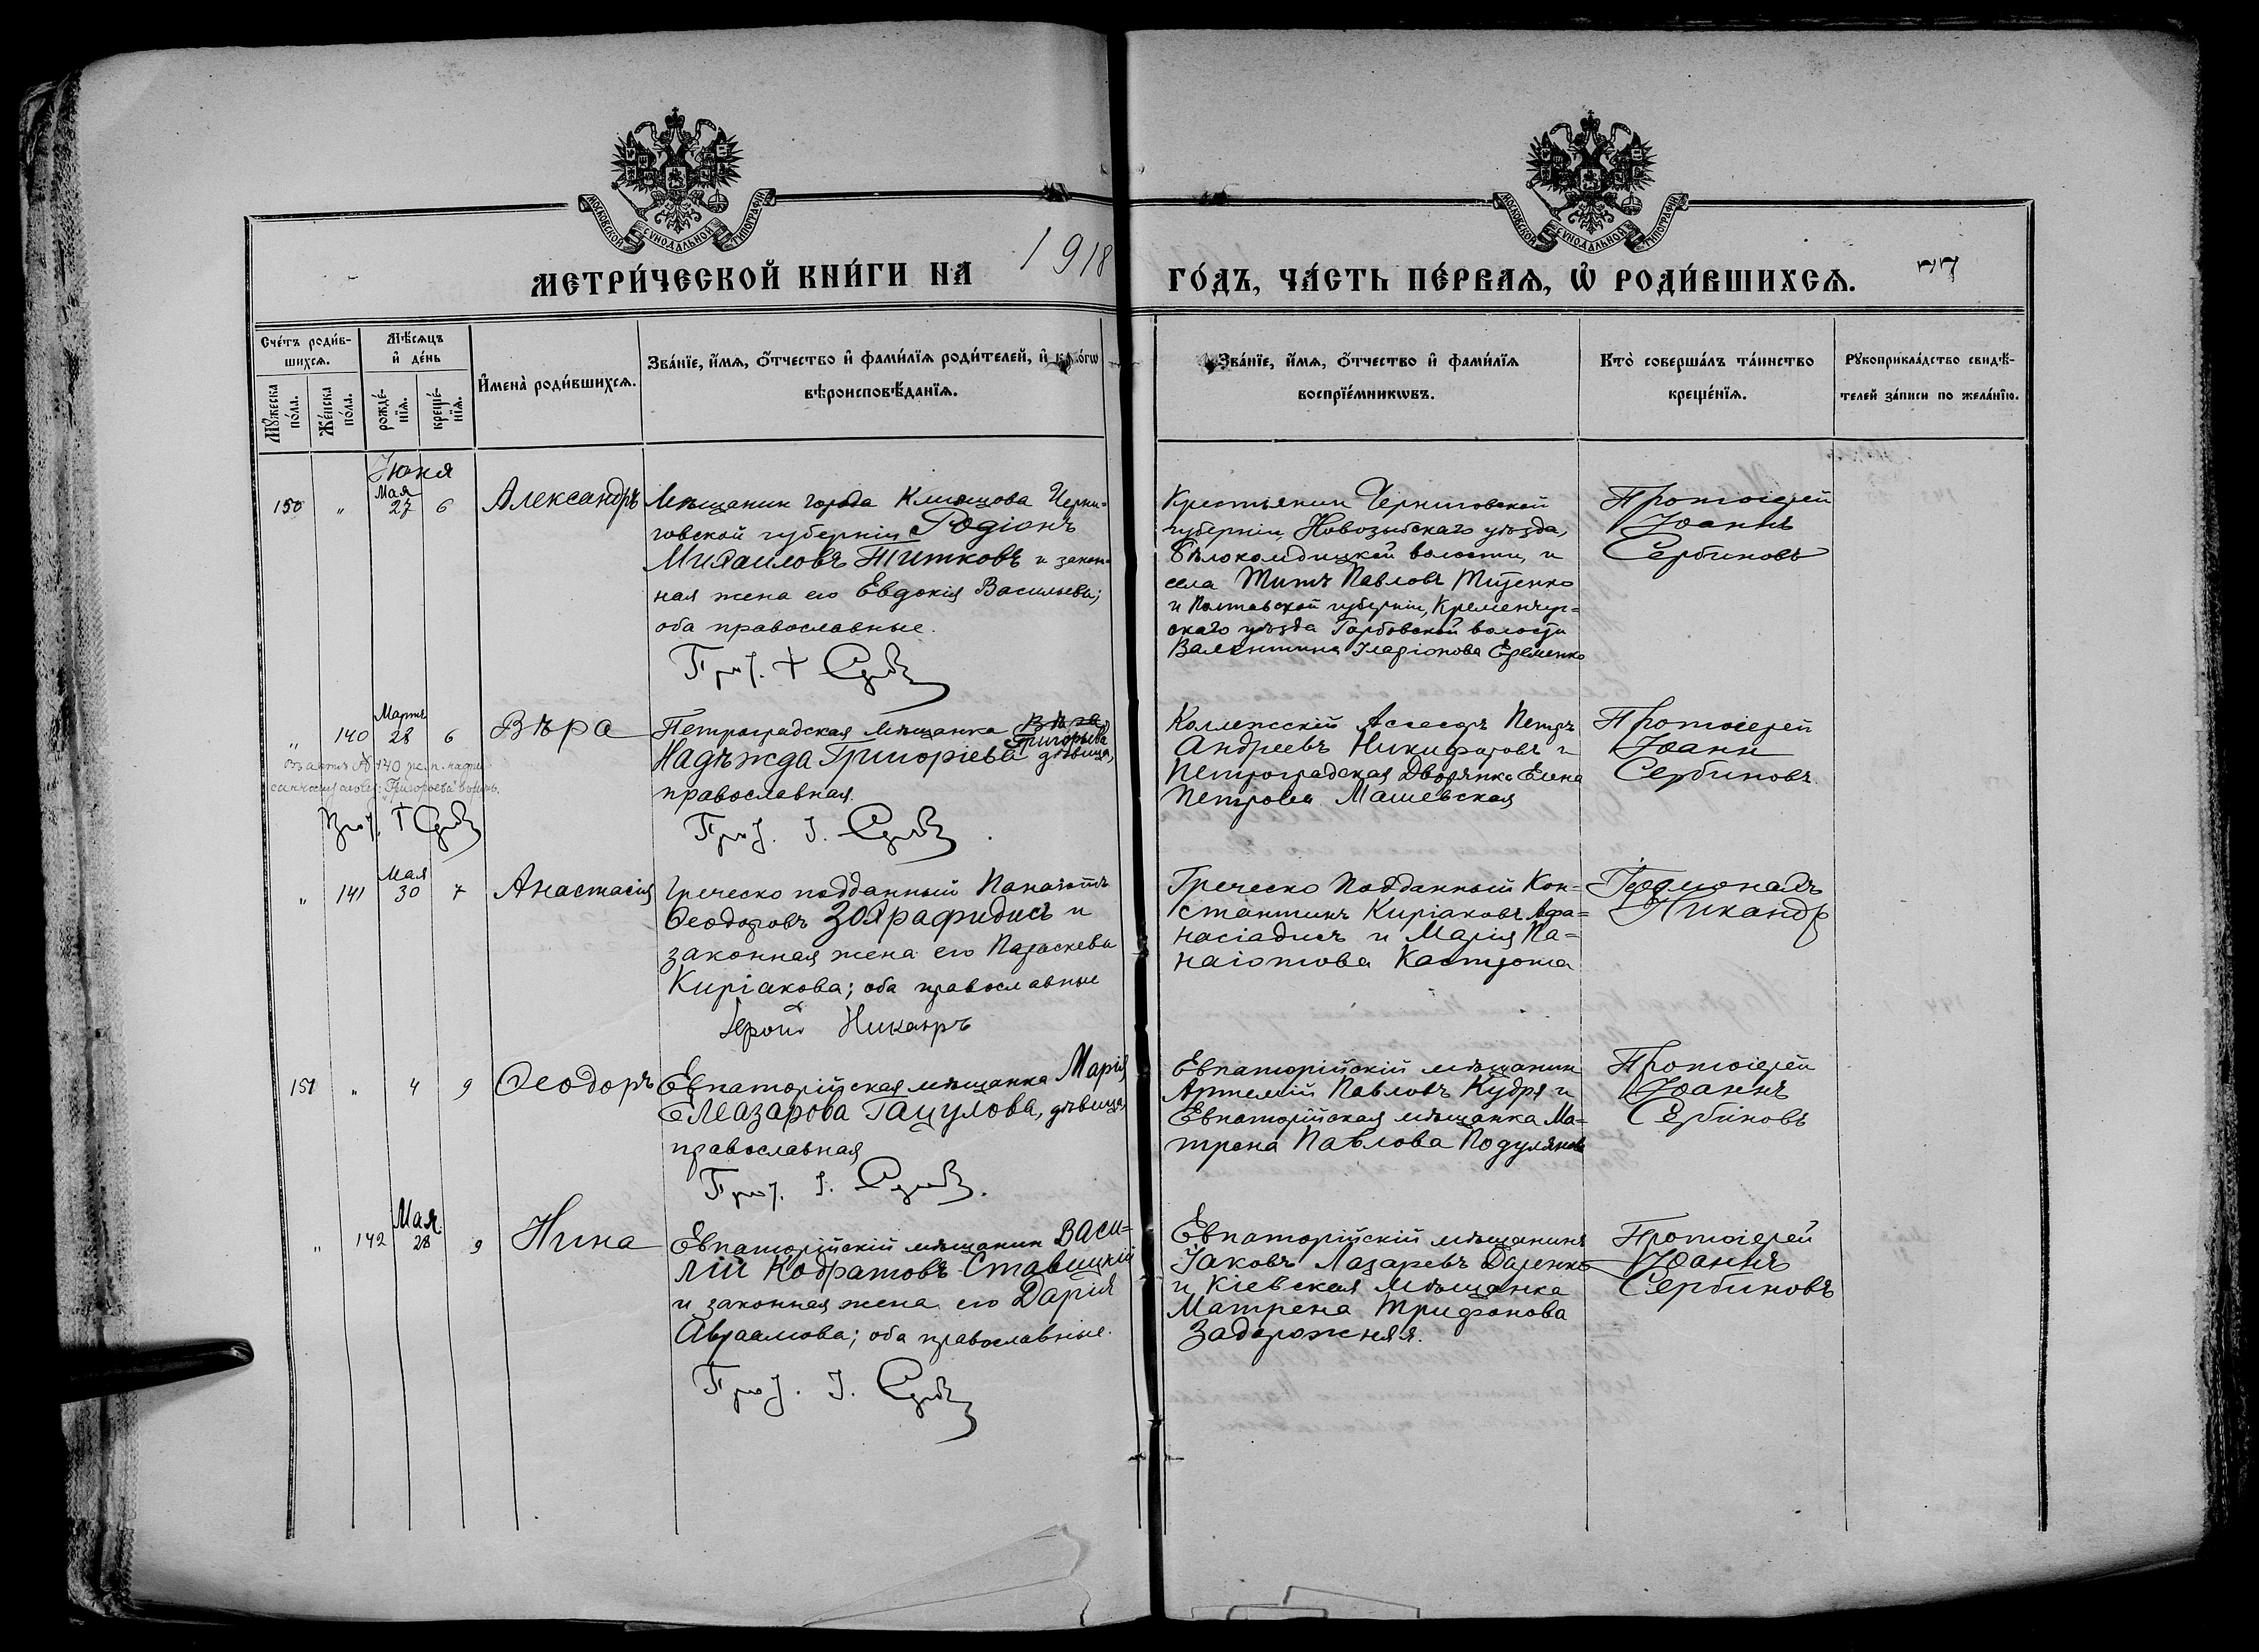 МОСКОВСКОЙ СУНОДАЛЬНОЙ ТИПОГРАФІИ
МОСКОВСКОЙ СУНОДАЛЬНОЙ ТИПОГРАФІИ
МЕТРИ́ЧЕСКОЙ КНИ́ГИ НА 1918
ГО́ДЪ, ЧА́СТЬ ПЕ́РВАѦ, Ѡ҆ РОДИ́ВШИХСѦ.
77
Сче́тъ роди́в-
шихсѧ.
Мѣ́сѧцъ
и҆ де́нь
Мꙋ́жеска
по́ла.
Же́нска
по́ла.
рожде́-
нїѧ.
креще́-
нїѧ.
И҆мена̀ роди́вшихсѧ.
Зва́нїе, и҆́мѧ, ѻ҆́тчество и҆ фами́лїѧ роди́телей, и҆
вѣроисповѣ́данїѧ.
Зва́нїе, и҆́мѧ, ѻ҆́тчество и҆ фами́лїѧ
воспрїе́мникѡвъ.
Кто̀ соверша́лъ та́инство
креще́нїѧ.
Рꙋкоприкла́дство свидѣ́-
телей за́писи по жела́нїю.
Іюня
150 " Мая 27 6
Александръ
Мѣщанин города Клинцова Черни-
говской губерніи Родіонъ
Михаиловъ Титковъ и закон-
ная жена его Евдокія Васильева;
оба православные.
Крестьянин Черниговской
губерніи Новозыбскаго уѣзда,
волости, и
села Титъ Павловъ Тищенко
и Полтавской губерніи, Кременчуг-
скаго уѣзда Горбовской волости
Валентина Иларіонова Еременко
Протоіерей
Іоаннъ
Сербиновъ
" 140 Мартъ 28 6
Вѣра
Петроградская мѣщанка
Григорьева
Надѣжда Григоріева дѣвица,
православная.
Прот. І.
Коллежскій Ассесоръ Петръ
Андреевъ Никифоровъ и
Петроградская Дворянка Елена
Петрова Машевская
Протоіерей
Іоанн
Сербиновъ.
" 141 Мая 30 7
Анастасія
Греческо подданный Панаіотъ
Ѳеодоровъ Зографидисъ и
законная жена его Параскева
Киріакова; оба православные
Іером. Никандръ
Греческо Подданный Кон=
стантинъ Киріаковъ Афа=
насіадисъ и Марія Па=
наіотова Кастрома
Іеромонахъ
Никандр
151 " 4 9
Ѳеодоръ
Евпаторійская мѣщанка Марія
Елеазарова Гацулова, дѣвица,
православная
Прот. І.
Евпаторійскій мѣщанин
Артемій Павловъ Кудря и
Евпаторійская мѣщанка Ма=
трона Павлова
Протоіерей
Іоаннъ
Сербиновъ
" 142 Мая 28 9
Нина
Евпаторійскій мѣщанин Васи=
лій Кодратовъ Ставицкій
и законная жена его Дарія
Авраамова; оба православные.
Прот. І.
Евпаторійскій мѣщанинъ
Іаковъ Лазаревъ Даценко
и Кіевская мѣщанка
Матрена Трифонова
Задорожняя.
Протоіерей
Іоаннъ
Сербиновъ